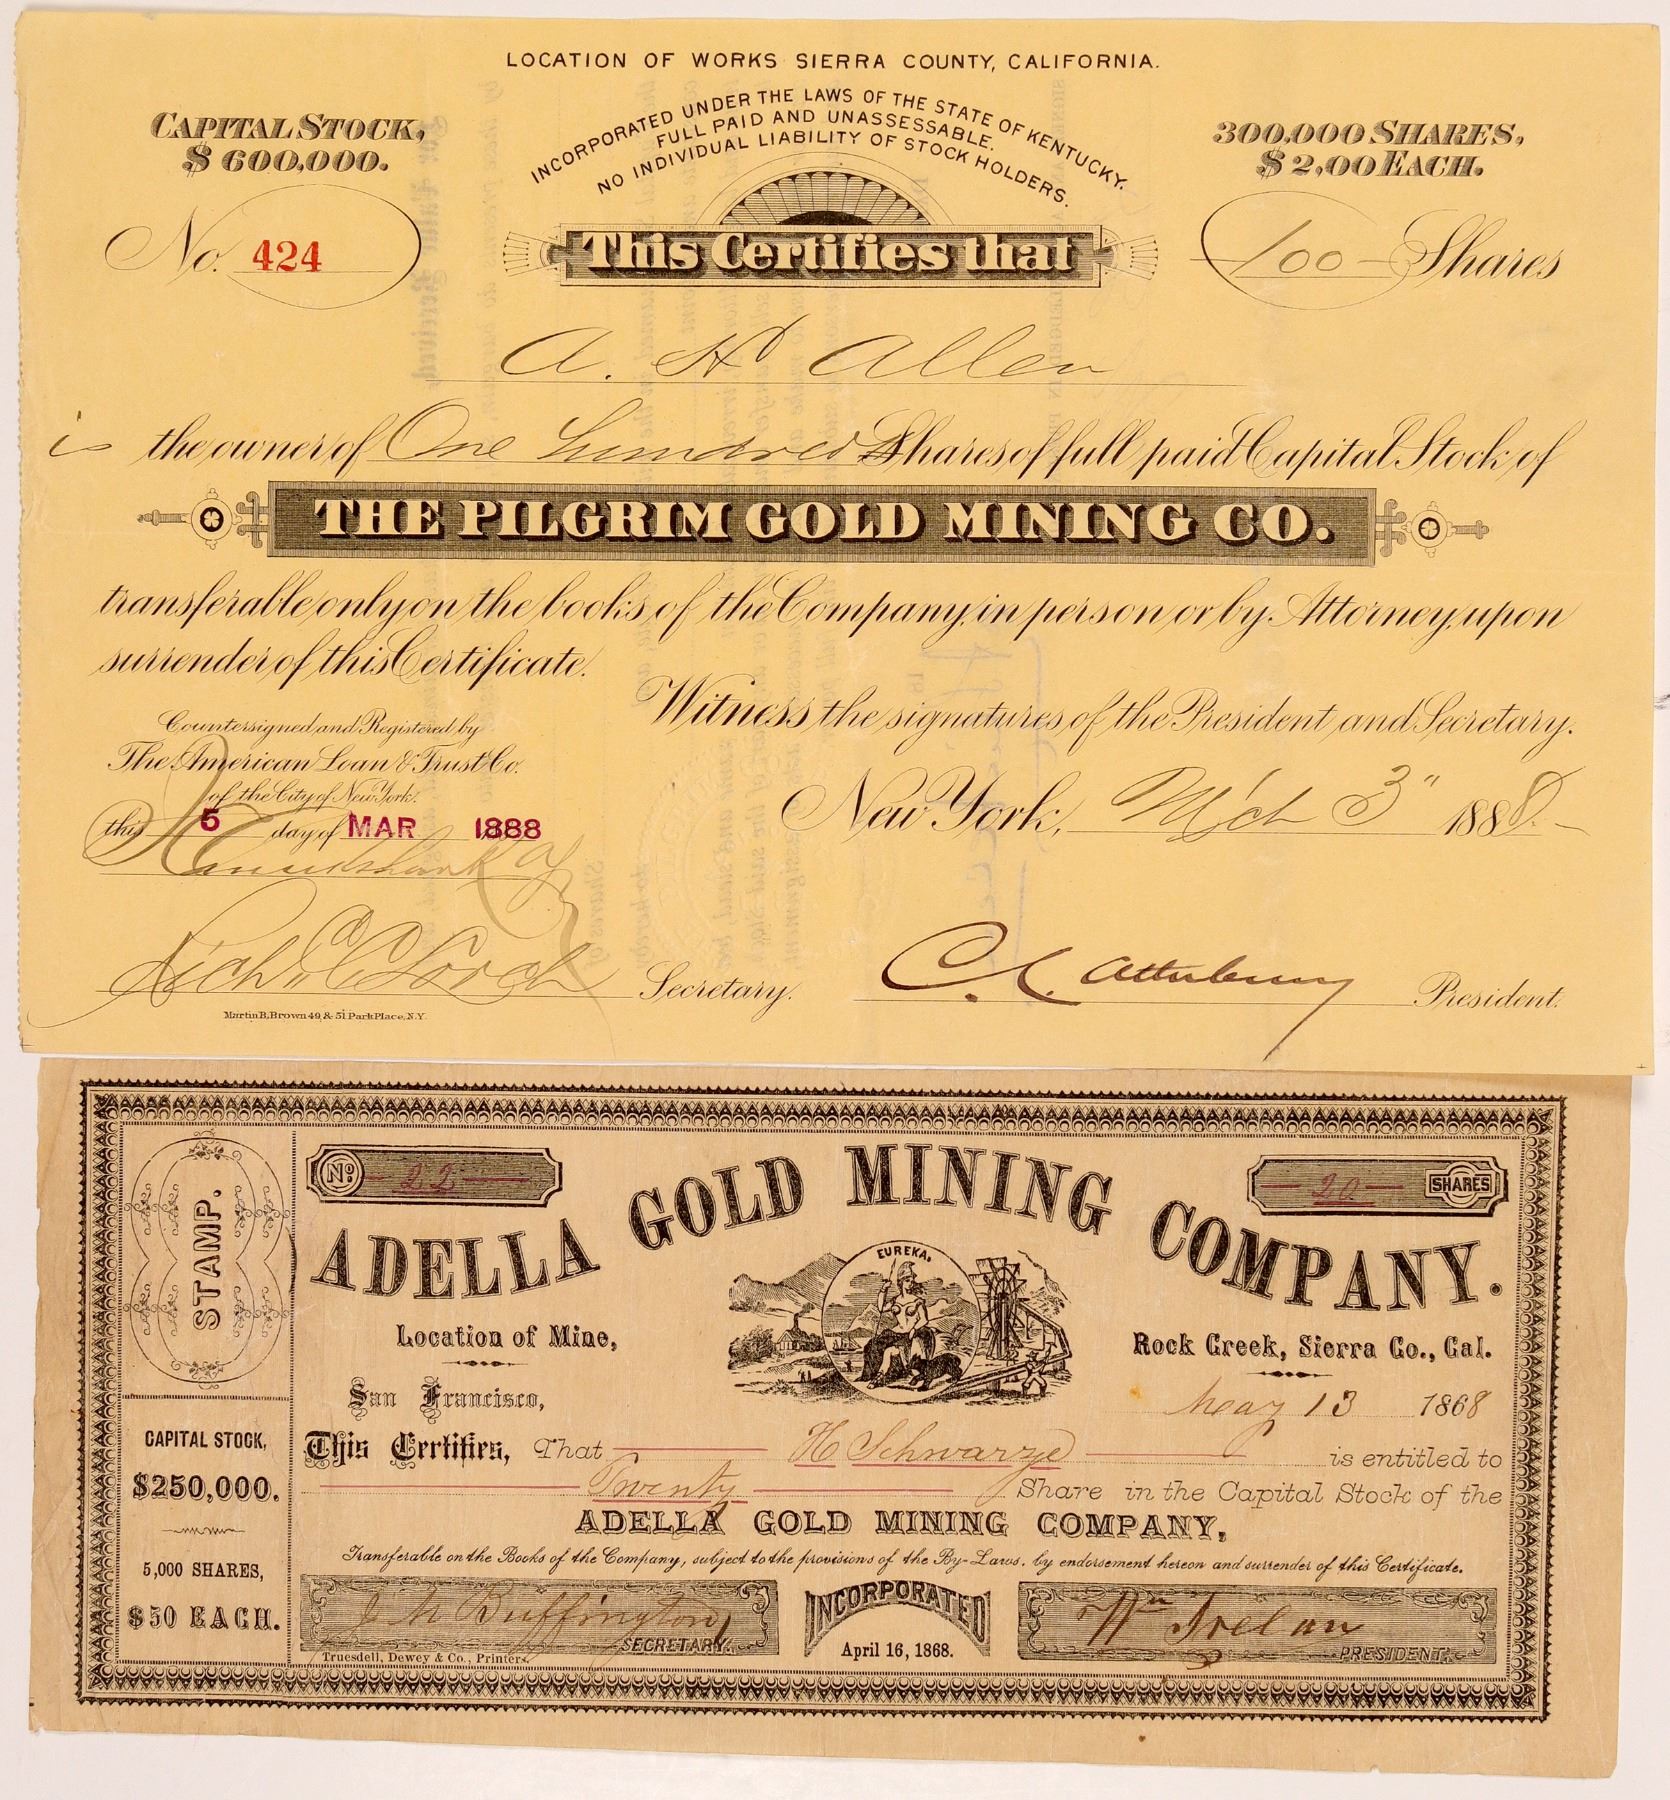 LOCATION OF WORKS SIERRA COUNTY, CALIFORNIA.
INCORPORATED UNDER THE LAWS OF THE STATE OF KENTUCKY.
FULL PAID AND UNASSESSABLE.
NO INDIVIDUAL LIABILITY OF STOCK HOLDERS.
CAPITAL STOCK,
$600,000.
300,000 SHARES,
$2,00 EACH.
No. 424
This Certifies that
100 Shares
A. H Allen
is the owner of One hundred Shares of full paid Capital Stock of
THE PILGRIM GOLD MINING CO.
transferable only on the books of the Company, in person or by Attorney, upon
surrender of this Certificate.
Witness the signatures of the President and Secretary.
Countersigned and Registered by
The American Loan & Trust Co.
of the City of New York.
this 5 day of MAR 1888
New York, Mch 3" 1888
Secretary.
C. L. Atterbury President.
Martin B, Brown 49 & 51 Park Place, N.Y.
STAMP.
No 22
ADELLA GOLD MINING COMPANY.
20 SHARES
EUREKA.
Location of Mine,
Rock Creek, Sierra Co., Cal.
San Francisco,
May 13 1868
This Certifies, That H Schwarze is entitled to
Twenty Share in the Capital Stock of the
ADELLA GOLD MINING COMPANY,
Transferable on the Books of the Company, subject to the provisions of the By-Laws, by endorsement hereon and surrender of this Certificate.
CAPITAL STOCK,
$250,000.
5,000 SHARES,
$50 EACH.
J N Buffington
SECRETARY.
INCORPORATED
April 16, 1868.
Wm Irelan
PRESIDENT.
Truesdell, Dewey & Co., Printers.